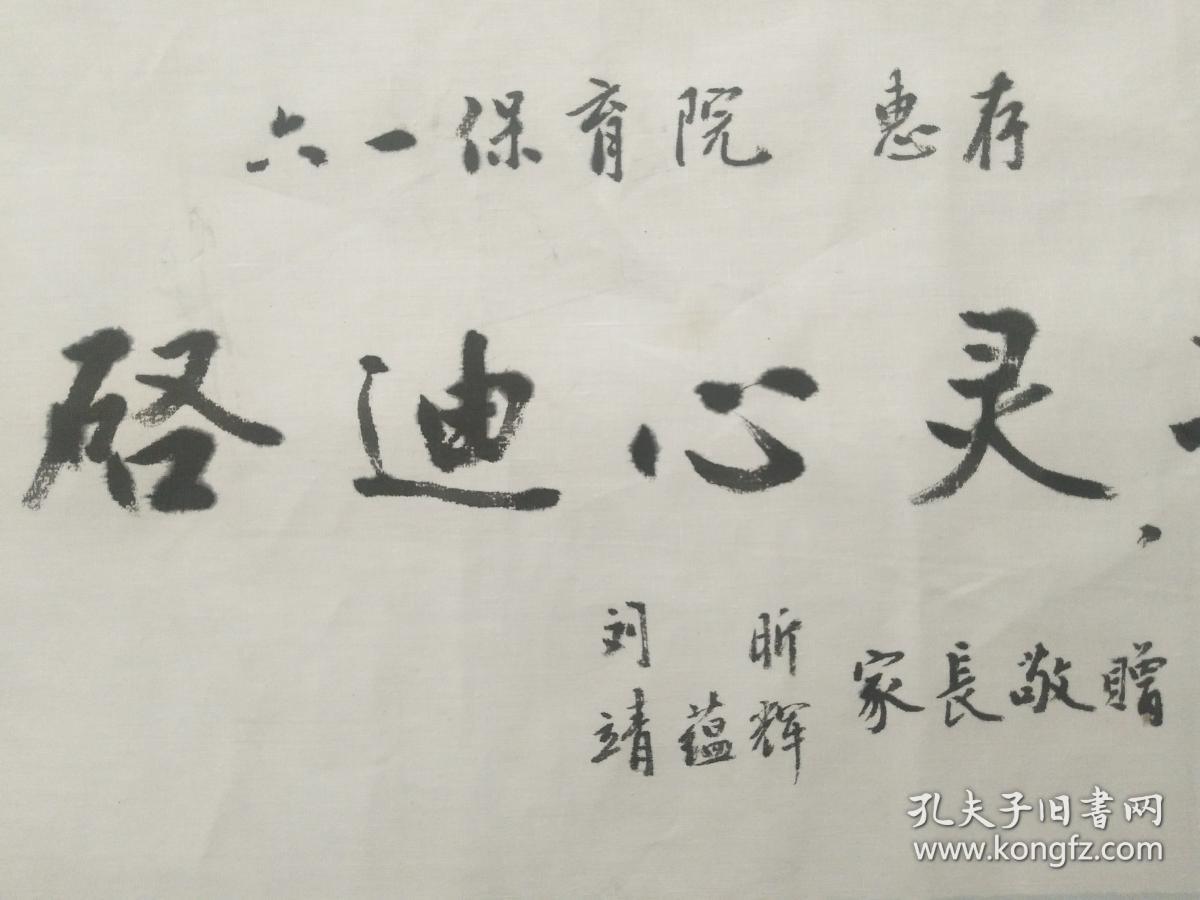 六一保育院 惠存
啓迪心灵
刘昕
靖蕴辉
家長敬贈
孔夫子旧書网
www.kongfz.com